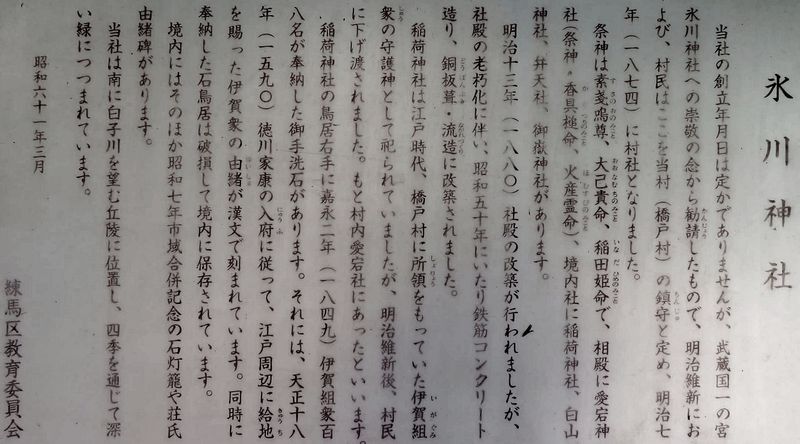 氷川神社
当社の創立年月日は定かでありませんが、武蔵国一の宮
氷川神社への崇敬の念から勧請したもので、明治維新にお
よび、村民はここを当村（橋戸村）の鎮守と定め、明治七
年（一八七四）に村社となりました。
祭神は素戔嗚尊、大己貴命、稲田姫命で、相殿に愛宕神
社（祭神〃香具槌命、火産霊命）、境内社に稲荷神社、白山
神社、弁天社、御嶽神社があります。
明治十三年（一八八〇）社殿の改築が行われましたが、
社殿の老朽化に伴い、昭和五十年にいたり鉄筋コンクリート
造り、銅板葺・流造に改築されました。
稲荷神社は江戸時代、橋戸村に所領をもっていた伊賀組
衆の守護神として祀られていましたが、明治維新後、村民
に下げ渡されました。もと村内愛宕社にあったといいます。
稲荷神社の鳥居右手に嘉永二年（一八四九）伊賀組衆百
八名が奉納した御手洗石があります。それには、天正十八
年（一五九〇）徳川家康の入府に従って、江戸周辺に給地
を賜った伊賀衆の由緒が漢文で刻まれています。同時に
奉納した石鳥居は破損して境内に保存されています。
境内にはそのほか昭和七年市域合併記念の石灯籠や荘氏
由緒碑があります。
当社は南に白子川を望む丘陵に位置し、四季を通じて深
い緑につつまれています。
昭和六十一年三月
練馬区教育委員会